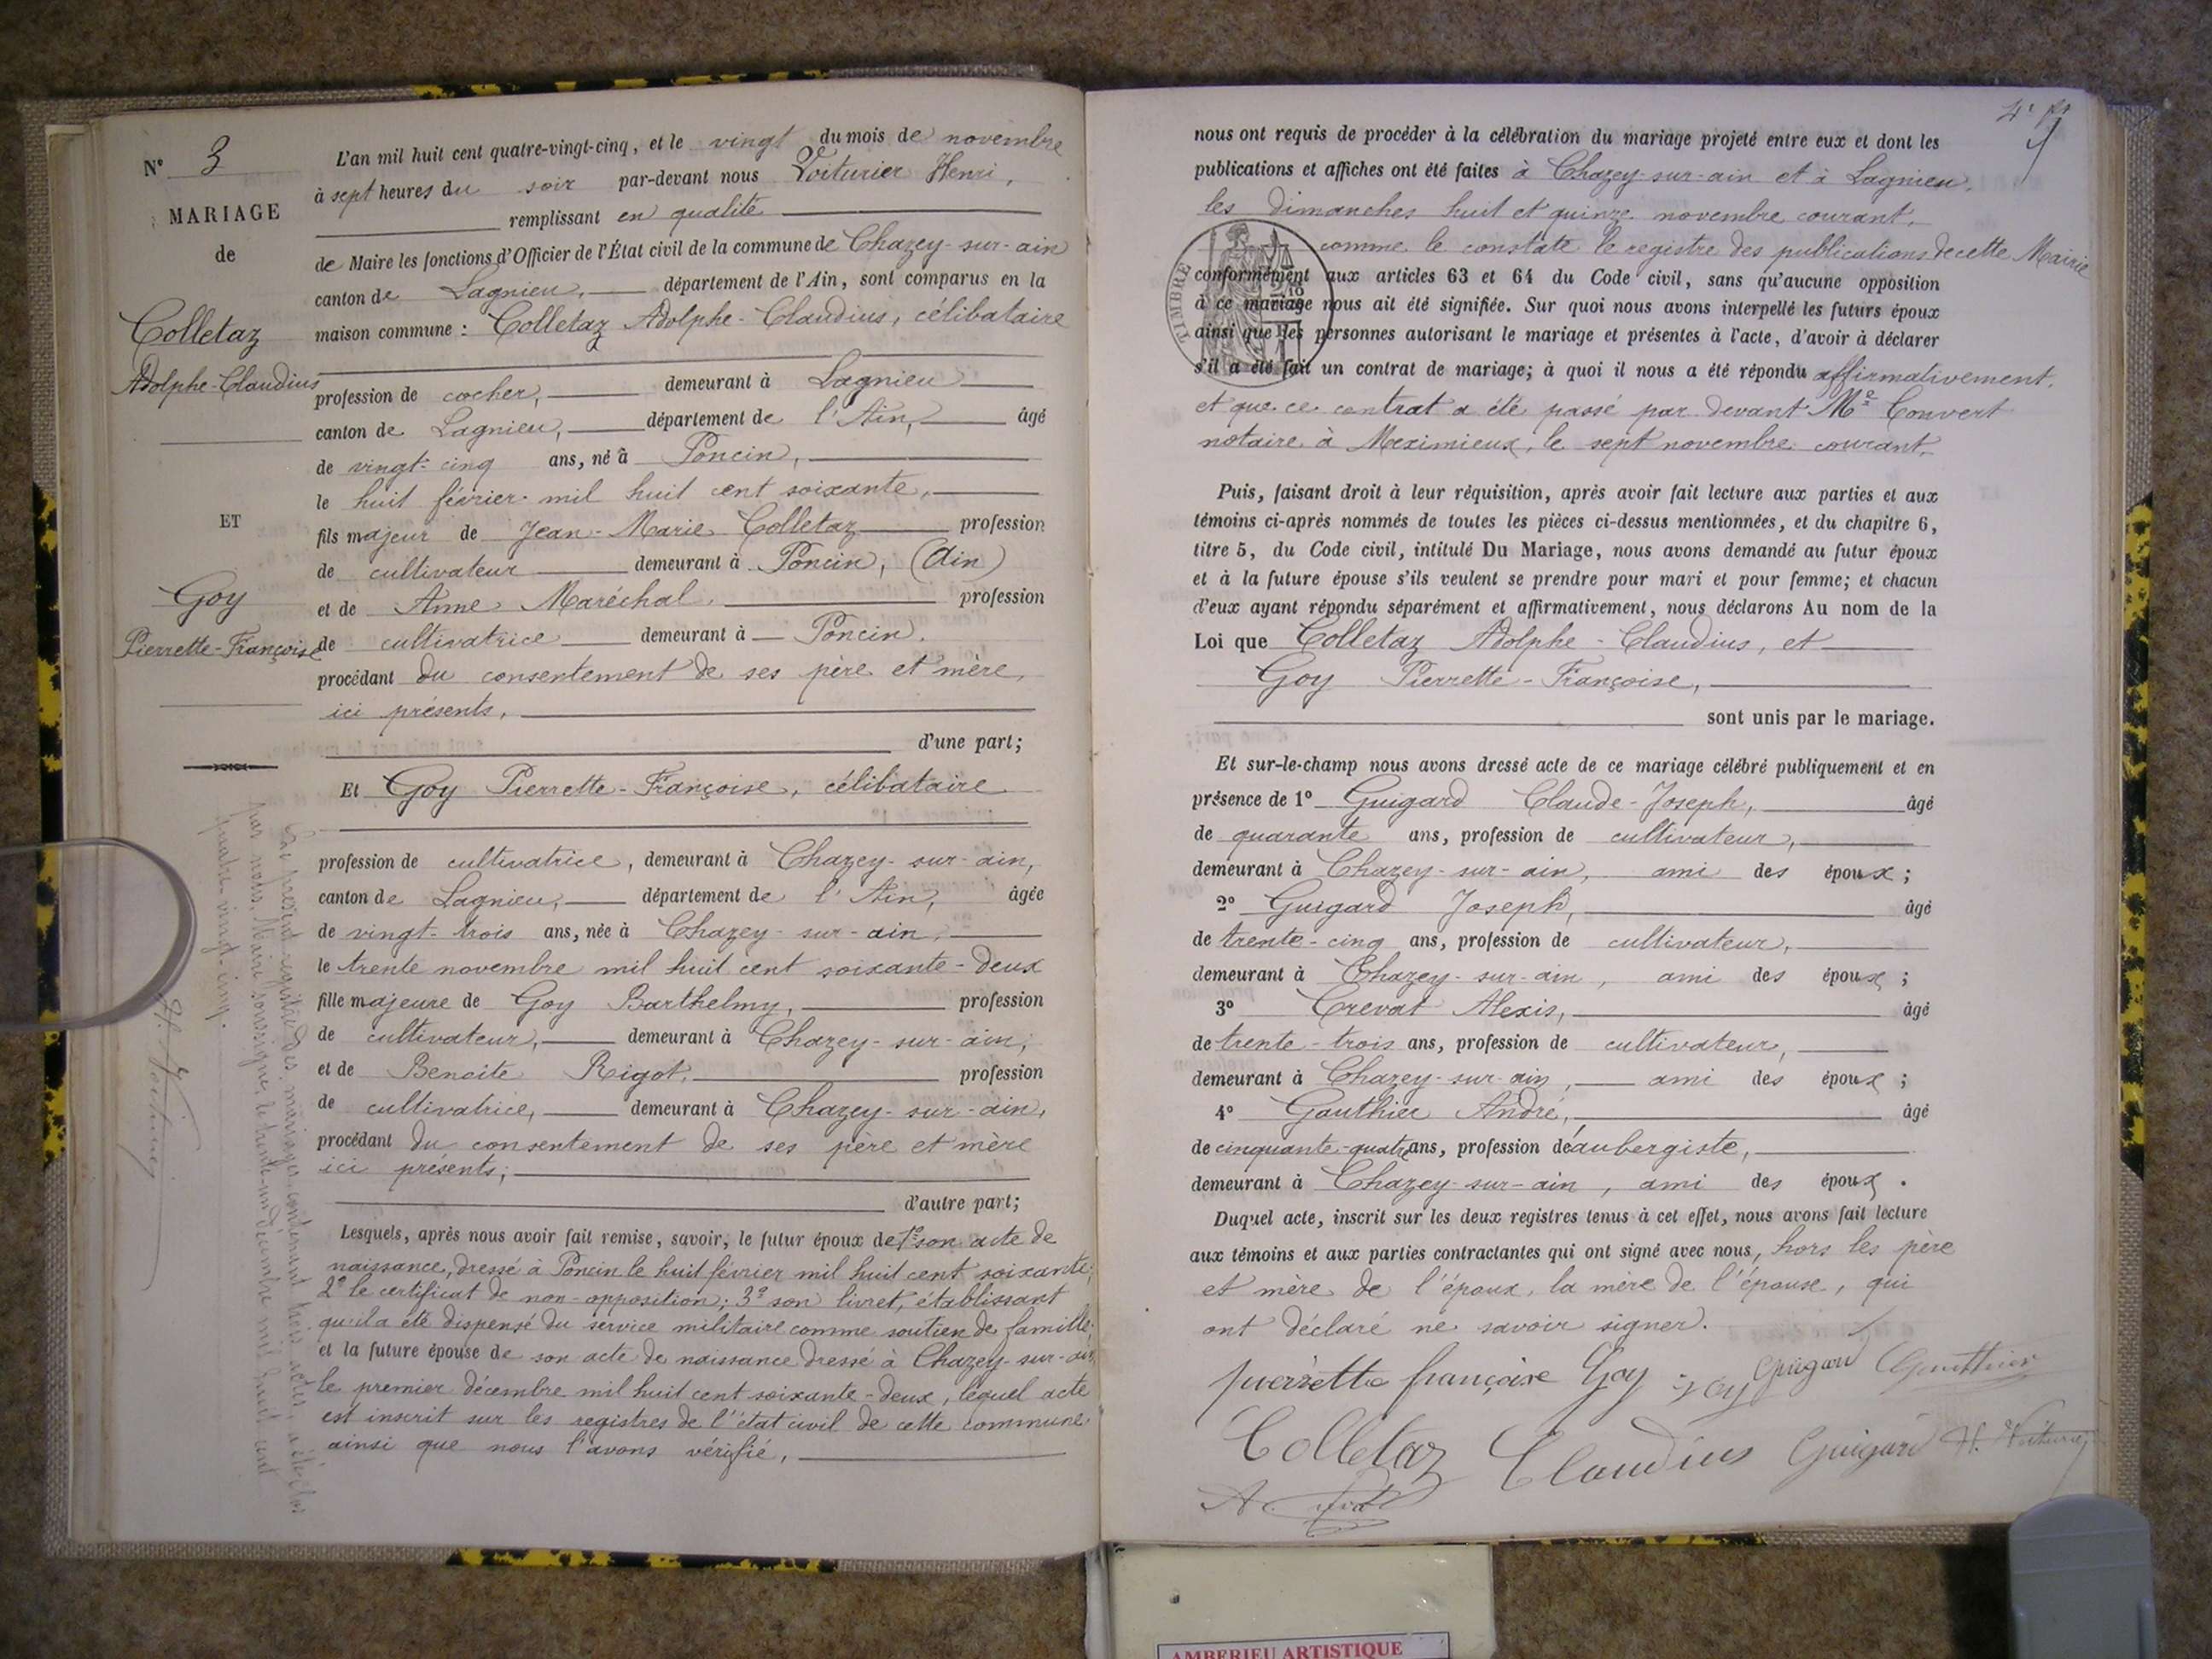 N° 3
MARIAGE
de
Colletaz
Adolphe-Claudius
ET
Goy
Pierrette-Françoise
L'an mil huit cent quatre-vingt-cinq, et le vingt du mois de novembre
à sept heures du soir par-devant nous Voiturier Henri,
remplissant en qualité
de Maire les fonctions d'Officier de l'État civil de la commune de Chazey-sur-ain
canton de Lagnieu, département de l'Ain, sont comparus en la
maison commune : Colletaz Adolphe-Claudius, célibataire
profession de cocher, demeurant à Lagnieu
canton de Lagnieu, département de l'Ain, âgé
de vingt-cinq ans, né à Poncin,
le huit février mil huit cent soixante,
fils majeur de Jean-Marie Colletaz profession
de cultivateur demeurant à Poncin, (Ain)
et de Anne Maréchal profession
de cultivatrice demeurant à Poncin.
procédant du consentement de ses père et mère,
ici présents,
d'une part;
Et Goy Pierrette-Françoise, célibataire
profession de cultivatrice, demeurant à Chazey-sur-ain,
canton de Lagnieu, département de l'Ain, âgée
de vingt-trois ans, née à Chazey-sur-ain,
le trente novembre mil huit cent soixante-deux
fille majeure de Goy Barthelmy, profession
de cultivateur, demeurant à Chazey-sur-ain,
et de Benoite Rigot, profession
de cultivatrice, demeurant à Chazey-sur-ain,
procédant du consentement de ses père et mère
ici présents;
d'autre part;
Lesquels, après nous avoir fait remise, savoir, le futur époux de 1° son acte de
naissance, dressé à Poncin le huit février mil huit cent soixante;
2° le certificat de non-opposition; 3° son livret, établissant
qu'il a été dispensé du service militaire comme soutien de famille;
et la future épouse de son acte de naissance dressé à Chazey-sur-ain
le premier décembre mil huit cent soixante-deux, lequel acte
est inscrit sur les registres de l'état civil de cette commune
ainsi que nous l'avons vérifié,
Le présent registre des mariages contenant trois actes, a été clos
par nous, Maire soussigné le trente-un décembre mil huit cent
quatre-vingt-cinq.
H. Voiturier
nous ont requis de procéder à la célébration du mariage projeté entre eux et dont les
publications et affiches ont été faites à Chazey-sur-ain et à Lagnieu,
les dimanches huit et quinze novembre courant,
comme le constate le registre des publications de cette Mairie
TIMBRE
conformément aux articles 63 et 64 du Code civil, sans qu'aucune opposition
à ce mariage nous ait été signifiée. Sur quoi nous avons interpellé les futurs époux
ainsi que les personnes autorisant le mariage et présentes à l'acte, d'avoir à déclarer
s'il a été fait un contrat de mariage; à quoi il nous a été répondu affirmativement,
et que ce contrat a été passé par devant Me Convert
notaire à Meximieux, le sept novembre courant,
Puis, faisant droit à leur réquisition, après avoir fait lecture aux parties et aux
témoins ci-après nommés de toutes les pièces ci-dessus mentionnées, et du chapitre 6,
titre 5, du Code civil, intitulé Du Mariage, nous avons demandé au futur époux
et à la future épouse s'ils veulent se prendre pour mari et pour femme; et chacun
d'eux ayant répondu séparément et affirmativement, nous déclarons Au nom de la
Loi que Colletaz Adolphe-Claudius, et
Goy Pierrette-Françoise,
sont unis par le mariage.
Et sur-le-champ nous avons dressé acte de ce mariage célébré publiquement et en
présence de 1° Guigard Claude-Joseph, âgé
de quarante ans, profession de cultivateur,
demeurant à Chazey-sur-ain, ami des époux;
2° Guigard Joseph, âgé
de trente-cinq ans, profession de cultivateur,
demeurant à Chazey-sur-ain, ami des époux;
3° Crevat Alexis, âgé
de trente-trois ans, profession de cultivateur,
demeurant à Chazey-sur-ain, ami des époux;
4° Gauthier André, âgé
de cinquante-quatre ans, profession d'aubergiste,
demeurant à Chazey-sur-ain, ami des époux.
Duquel acte, inscrit sur les deux registres tenus à cet effet, nous avons fait lecture
aux témoins et aux parties contractantes qui ont signé avec nous, hors les père
et mère de l'époux, la mère de l'épouse, qui
ont déclaré ne savoir signer.
pierrette françoise Goy Goy Guigard Gauthier
Colletaz Claudius Guigard H. Voiturier
AMBERIEU ARTISTIQUE